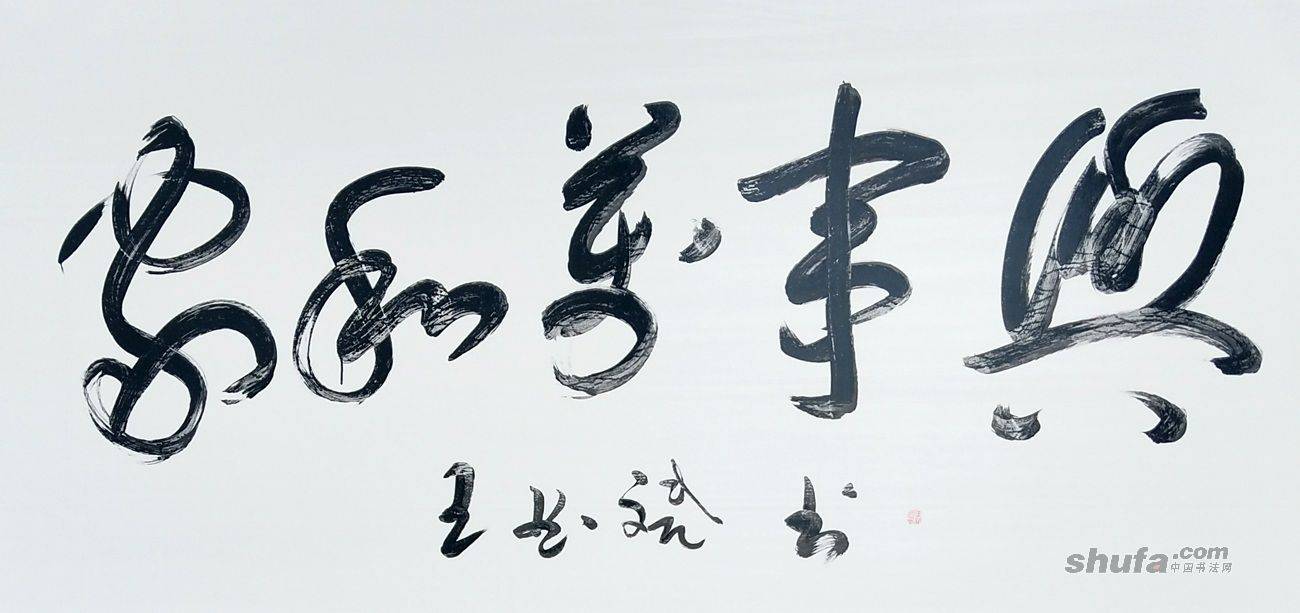 家和万事兴
王 斌 书
shufa.com
中国书法网